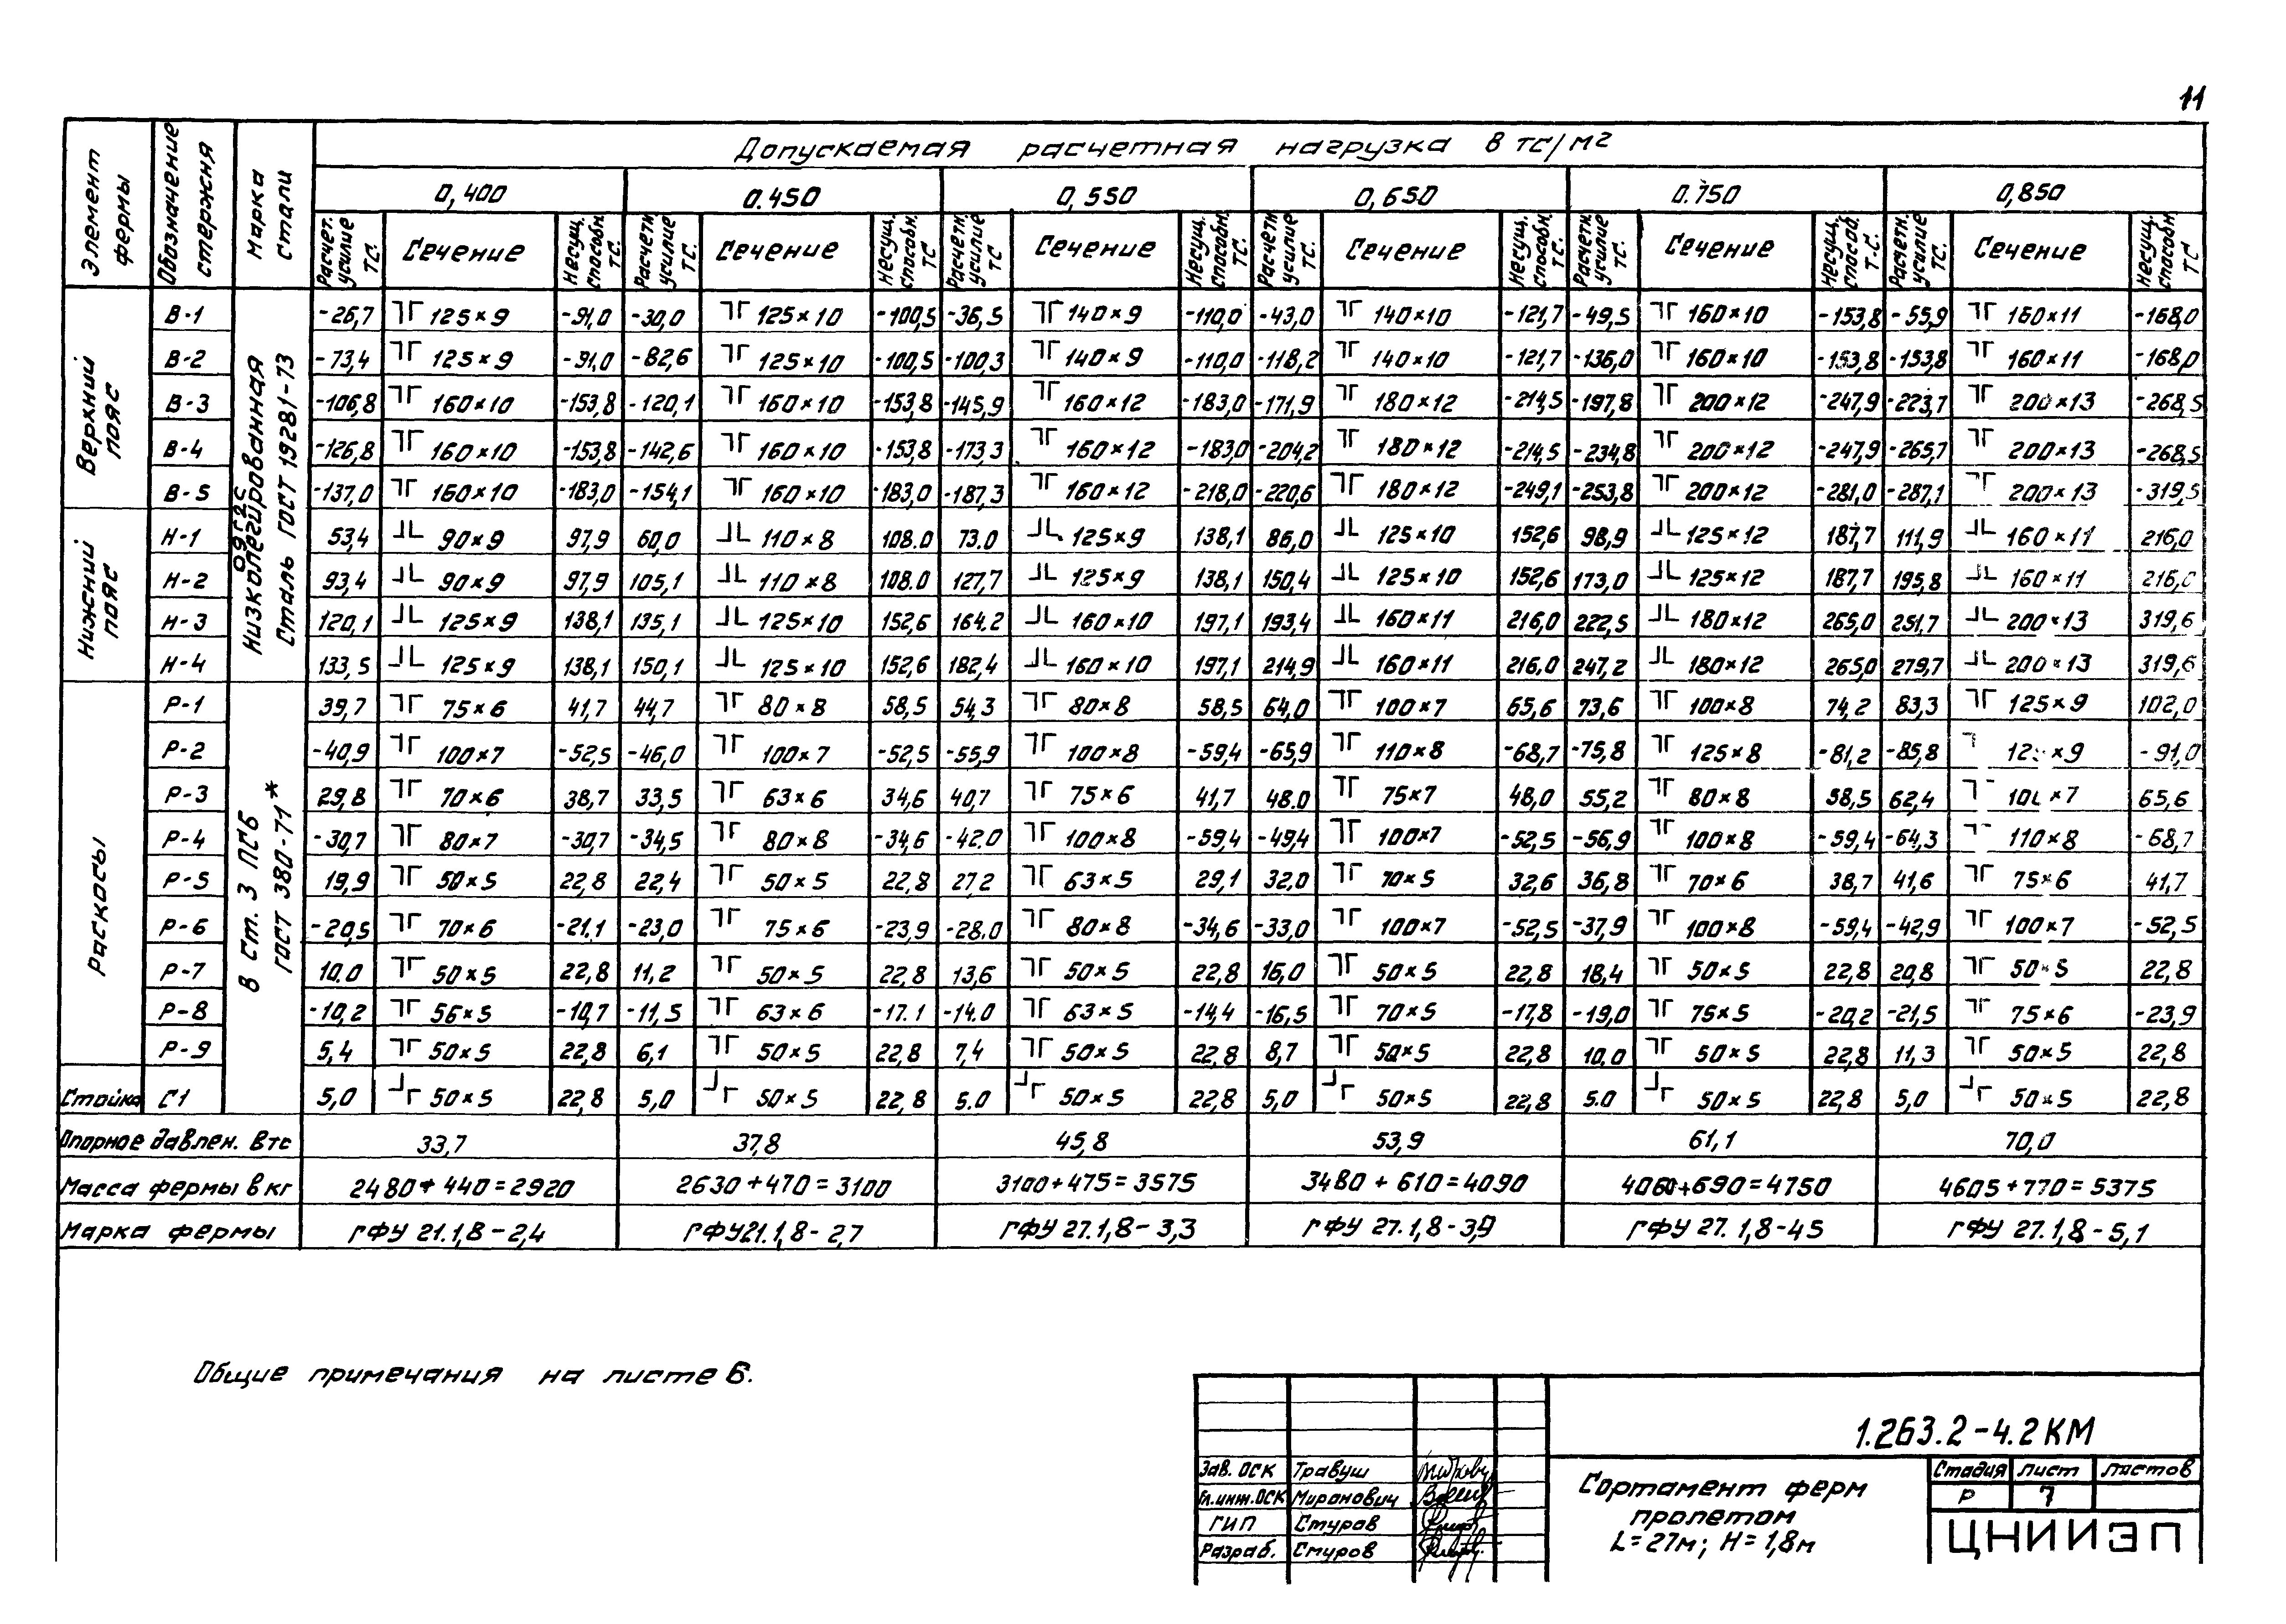 11
Допускаемая расчетная нагрузка в тс/м²
Элемент фермы | Обозначение стержня | Марка стали | 0,400 | 0.450 | 0,550 | 0,650 | 0.750 | 0,850
Расчет. усилие ТС. | Сечение | Несущ. способн. ТС | Расчетн. усилие ТС. | Сечение | Несущ. способн. ТС | Расчетн. усилие ТС | Сечение | Несущ. способн. ТС. | Расчетн. усилие ТС. | Сечение | Несущ. способн. ТС. | Расчетн. усилие ТС. | Сечение | Несущ. способ. Т.С. | Расчетн. усилие ТС. | Сечение | Несущ. способн. ТС
Верхний пояс
09г2с
Низколегированная
Сталь ГОСТ 19281-73
В-1 | -26,7 | 125×9 | -91,0 | -30,0 | 125×10 | -100,5 | -36,5 | 140×9 | -110,0 | -43,0 | 140×10 | -121,7 | -49,5 | 160×10 | -153,8 | -55,9 | 160×11 | -168,0
В-2 | -73,4 | 125×9 | -91,0 | -82,6 | 125×10 | -100,5 | -100,3 | 140×9 | -110,0 | -118,2 | 140×10 | -121,7 | -136,0 | 160×10 | -153,8 | -153,8 | 160×11 | -168,0
В-3 | -106,8 | 160×10 | -153,8 | -120,1 | 160×10 | -153,8 | -145,9 | 160×12 | -183,0 | -171,9 | 180×12 | -214,5 | -197,8 | 200×12 | -247,9 | -223,7 | 200×13 | -268,5
В-4 | -126,8 | 160×10 | -153,8 | -142,6 | 160×10 | -153,8 | -173,3 | 160×12 | -183,0 | -204,2 | 180×12 | -214,5 | -234,8 | 200×12 | -247,9 | -265,7 | 200×13 | -268,5
В-5 | -137,0 | 160×10 | -183,0 | -154,1 | 160×10 | -183,0 | -187,3 | 160×12 | -218,0 | -220,6 | 180×12 | -249,1 | -253,8 | 200×12 | -281,0 | -287,1 | 200×13 | -319,5
Нижний пояс
Н-1 | 53,4 | 90×9 | 97,9 | 60,0 | 110×8 | 108.0 | 73.0 | 125×9 | 138,1 | 86,0 | 125×10 | 152,6 | 98,9 | 125×12 | 187,7 | 111,9 | 160×11 | 216,0
Н-2 | 93,4 | 90×9 | 97,9 | 105,1 | 110×8 | 108.0 | 127,7 | 125×9 | 138,1 | 150,4 | 125×10 | 152,6 | 173,0 | 125×12 | 187,7 | 195,8 | 160×11 | 216,0
Н-3 | 120,1 | 125×9 | 138,1 | 135,1 | 125×10 | 152,6 | 164.2 | 160×10 | 197,1 | 193,4 | 160×11 | 216,0 | 222,5 | 180×12 | 265,0 | 251,7 | 200×13 | 319,6
Н-4 | 133,5 | 125×9 | 138,1 | 150,1 | 125×10 | 152,6 | 182,4 | 160×10 | 197,1 | 214,9 | 160×11 | 216,0 | 247,2 | 180×12 | 265,0 | 279,7 | 200×13 | 319,6
Раскосы
В ст. 3 ПС6
ГОСТ 380-71*
Р-1 | 39,7 | 75×6 | 41,7 | 44,7 | 80×8 | 58,5 | 54,3 | 80×8 | 58,5 | 64,0 | 100×7 | 65,6 | 73,6 | 100×8 | 74,2 | 83,3 | 125×9 | 102,0
Р-2 | -40,9 | 100×7 | -52,5 | -46,0 | 100×7 | -52,5 | -55,9 | 100×8 | -59,4 | -65,9 | 110×8 | -68,7 | -75,8 | 125×8 | -81,2 | -85,8 | 125×9 | -91,0
Р-3 | 29,8 | 70×6 | 38,7 | 33,5 | 63×6 | 34,6 | 40,7 | 75×6 | 41,7 | 48.0 | 75×7 | 48,0 | 55,2 | 80×8 | 58,5 | 62,4 | 100×7 | 65,6
Р-4 | -30,7 | 80×7 | -30,7 | -34,5 | 80×8 | -34,6 | -42.0 | 100×8 | -59,4 | -49,4 | 100×7 | -52,5 | -56,9 | 100×8 | -59,4 | -64,3 | 110×8 | -68,7
Р-5 | 19,9 | 50×5 | 22,8 | 22,4 | 50×5 | 22,8 | 27 2 | 63×5 | 29,1 | 32.0 | 70×5 | 32,6 | 36,8 | 70×6 | 38,7 | 41,6 | 75×6 | 41,7
Р-6 | -20,5 | 70×6 | -21.1 | -23,0 | 75×6 | -23,9 | -28.0 | 80×8 | -34,6 | -33,0 | 100×7 | -52,5 | -37,9 | 100×8 | -59,4 | -42,9 | 100×7 | -52,5
Р-7 | 10.0 | 50×5 | 22,8 | 11,2 | 50×5 | 22,8 | 13,6 | 50×5 | 22,8 | 16,0 | 50×5 | 22,8 | 18,4 | 50×5 | 22,8 | 20,8 | 50×5 | 22,8
Р-8 | -10,2 | 56×5 | -10,7 | -11,5 | 63×6 | -17.1 | -14.0 | 63×5 | -14,4 | -16,5 | 70×5 | -17,8 | -19,0 | 75×5 | -20,2 | -21,5 | 75×6 | -23,9
Р-9 | 5,4 | 50×5 | 22,8 | 6,1 | 50×5 | 22,8 | 7,4 | 50×5 | 22,8 | 8,7 | 50×5 | 22,8 | 10,0 | 50×5 | 22,8 | 11,3 | 50×5 | 22,8
Стойка | С1 | 5,0 | 50×5 | 22,8 | 5,0 | 50×5 | 22,8 | 5.0 | 50×5 | 22,8 | 5,0 | 50×5 | 22,8 | 5.0 | 50×5 | 22,8 | 5,0 | 50×5 | 22,8
Опорное давлен. в тс | 33,7 | 37,8 | 45,8 | 53,9 | 61,1 | 70,0
Масса фермы в кг | 2480+440=2920 | 2630+470=3100 | 3100+475=3575 | 3480+610=4090 | 4060+690=4750 | 4605+770=5375
Марка фермы | ГФУ 21.1,8-2,4 | ГФУ21.1,8-2,7 | ГФУ 27.1,8-3,3 | ГФУ 27.1,8-3,9 | ГФУ 27.1,8-45 | ГФУ 27.1,8-5,1
Общие примечания на листе 6.
1.263.2-4.2КМ
Зав. ОСК Травуш
Гл.инж.ОСК Миранович
ГИП Стуров
Разраб. Смуров
Сортамент ферм
пролетом
L=27м; Н=1,8м
Стадия Лист Листов
Р 7
ЦНИИЭП